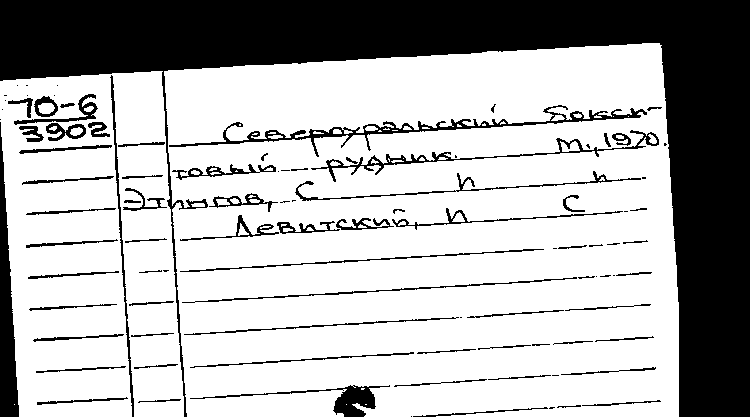 70-6
3902
Североуральский бокси-
товый рудник. М., 1970.
Этингов, С И И
Левитский, И С